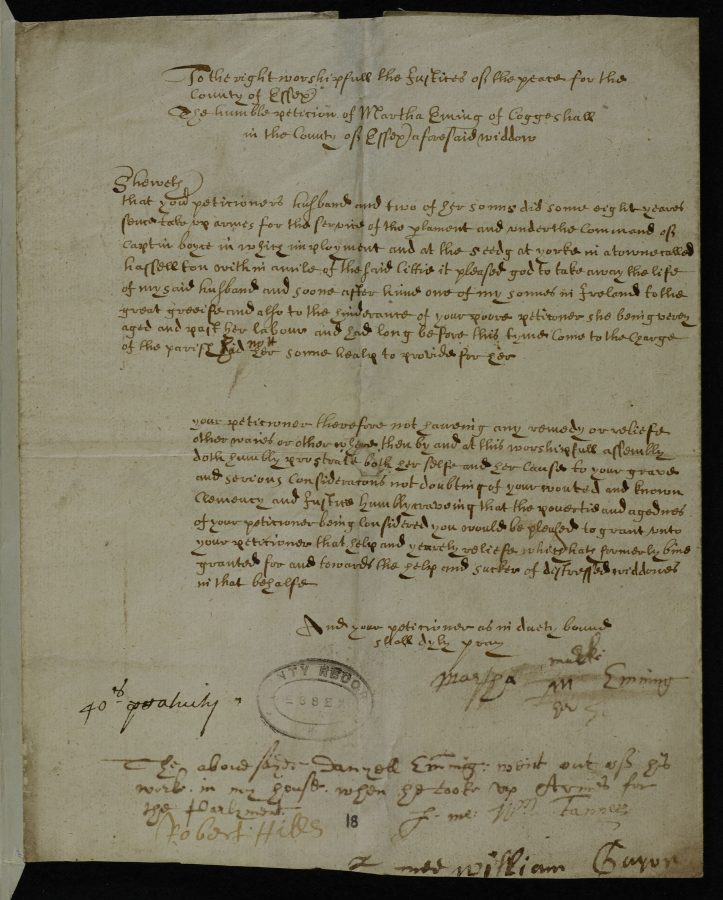 To the right worshipfull the Justices of the peace for the
County of Essex
The humble peticion of Martha Eming of Coggeshall
in the County of Essex aforesaid widdow
Sheweth
that your peticioners husband and two of her sonns did some eight yeares
sence take up armes for the service of the plament and under the Command of
Captin boyce in which imployment and at the seedg at yorke in a towne called
hassellton within a mile of the said Cittie it pleased god to take away the life
of my said husband and soone after hime one of my sonnes in Ireland to the
great greeife and also to the hinderance of your poore peticioner she being verey
aged and past her labour and had long before this tyme Come to the Charge
of the parish had not her sonne healp to provide for her
your peticioner therefore not haveing any remedy or releife
other waies or other where then by and at this worshipfull assembly
doth humbly prostrate both her selfe and her Cause to your grave
and serious Consideracons not doubting of your wonted and known
Clemency and Justice humbly craveing that the povertie and agednes
of your peticioner being Considered you would be pleased to grant unto
your peticioner that help and yearely releife which hath formerly bine
granted for and towards the help and sucker of distressed widdowes
in that behalfe
And your peticioner as in duety bound
shall dyly pray
Martha marke Eming
M
her
40s
COUNTY RECORD
ESSEX
The above sayde Danyell Eming: went out of his
worke in my house when he tooke up Armes for
the Parlyment
me: Wm Tanner
Robert Hills
18
med William Guyon